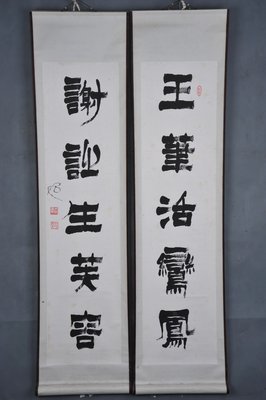 王筆活鸞鳳
謝訟生芙容